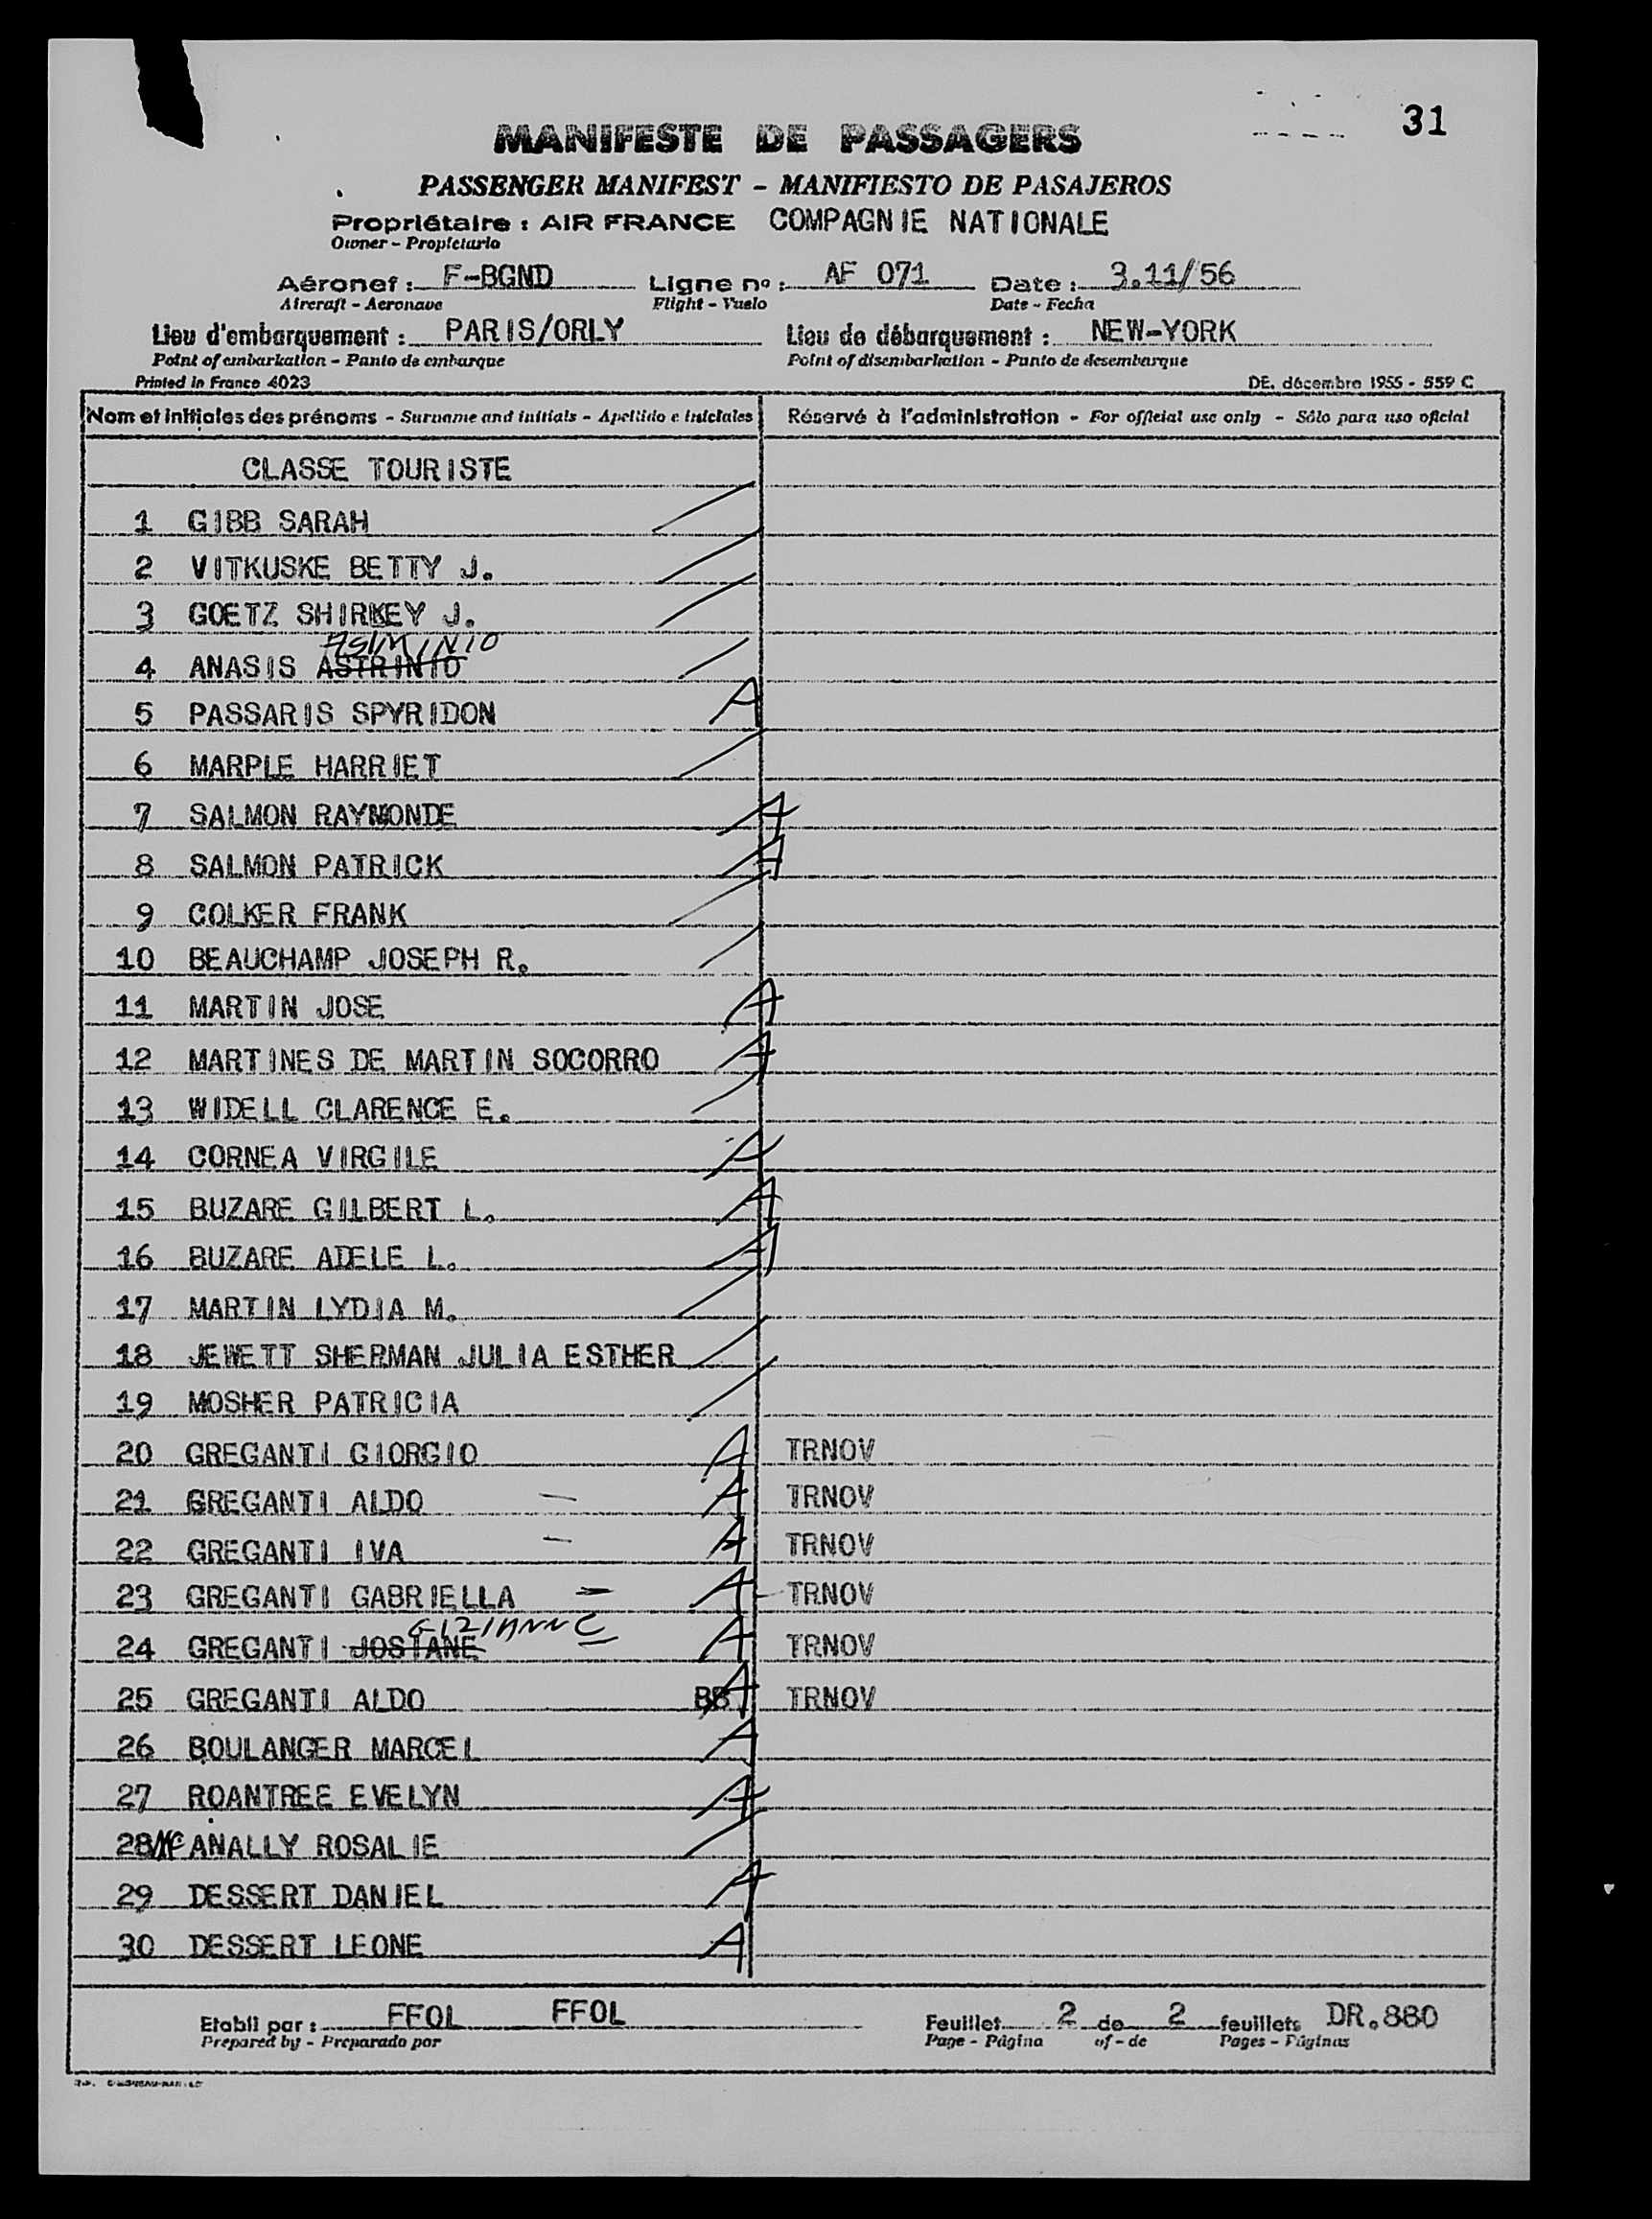 31
MANIFESTE DE PASSAGERS
PASSENGER MANIFEST – MANIFIESTO DE PASAJEROS
Propriétaire : AIR FRANCE COMPAGNIE NATIONALE
Owner – Propietario
Aéronef : F-BGND Ligne nº : AF 071 Date : 3.11/56
Aircraft – Aeronave Flight – Vuelo Date – Fecha
Lieu d'embarquement : PARIS/ORLY Lieu de débarquement : NEW-YORK
Point of embarkation – Punto de embarque Point of disembarkation – Punto de desembarque
Printed in France 4023 DE. décembre 1955 - 559 C
Nom et initiales des prénoms – Surname and initials – Apellido e iniciales Réservé à l'administration – For official use only – Sólo para uso oficial
CLASSE TOURISTE
1 GIBB SARAH
2 VITKUSKE BETTY J.
3 GOETZ SHIRKEY J.
ASIMINIO
4 ANASIS ASTRINIO
5 PASSARIS SPYRIDON A
6 MARPLE HARRIET
7 SALMON RAYMONDE A
8 SALMON PATRICK A
9 COLKER FRANK
10 BEAUCHAMP JOSEPH R.
11 MARTIN JOSE A
12 MARTINES DE MARTIN SOCORRO A
13 WIDELL CLARENCE E.
14 CORNEA VIRGILE A
15 BUZARE GILBERT L. A
16 BUZARE ADELE L. A
17 MARTIN LYDIA M.
18 JEWETT SHERMAN JULIA ESTHER
19 MOSHER PATRICIA
20 GREGANTI GIORGIO A TRNOV
21 GREGANTI ALDO — A TRNOV
22 GREGANTI IVA — A TRNOV
23 GREGANTI GABRIELLA A TRNOV
GIZIANNE
24 GREGANTI JOSIANE A TRNOV
25 GREGANTI ALDO BB A TRNOV
26 BOULANGER MARCEL A
27 ROANTREE EVELYN A
28 Mc ANALLY ROSALIE
29 DESSERT DANIEL A
30 DESSERT LEONE A
Etabli par : FFOL FFOL Feuillet 2 de 2 feuillets DR.880
Prepared by – Preparado por Page – Página of – de Pages – Páginas